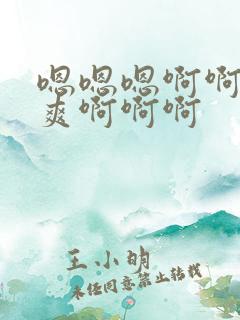 嗯嗯嗯啊啊
爽啊啊啊
王小明
未经同意禁止转载